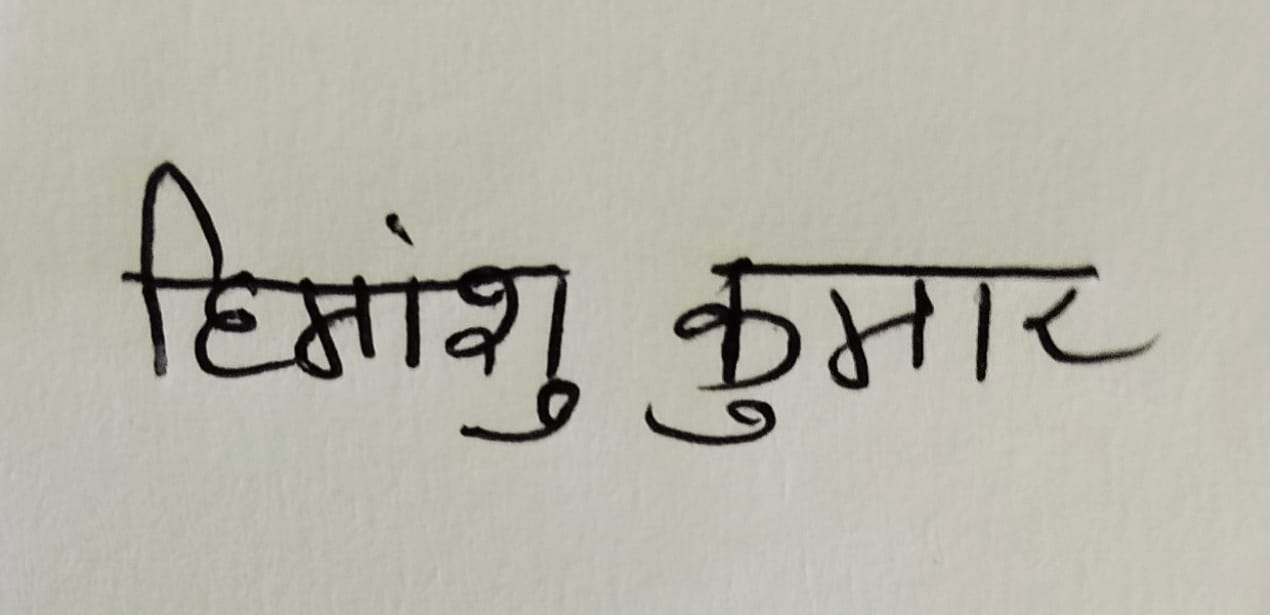 हिमांशु कुमार